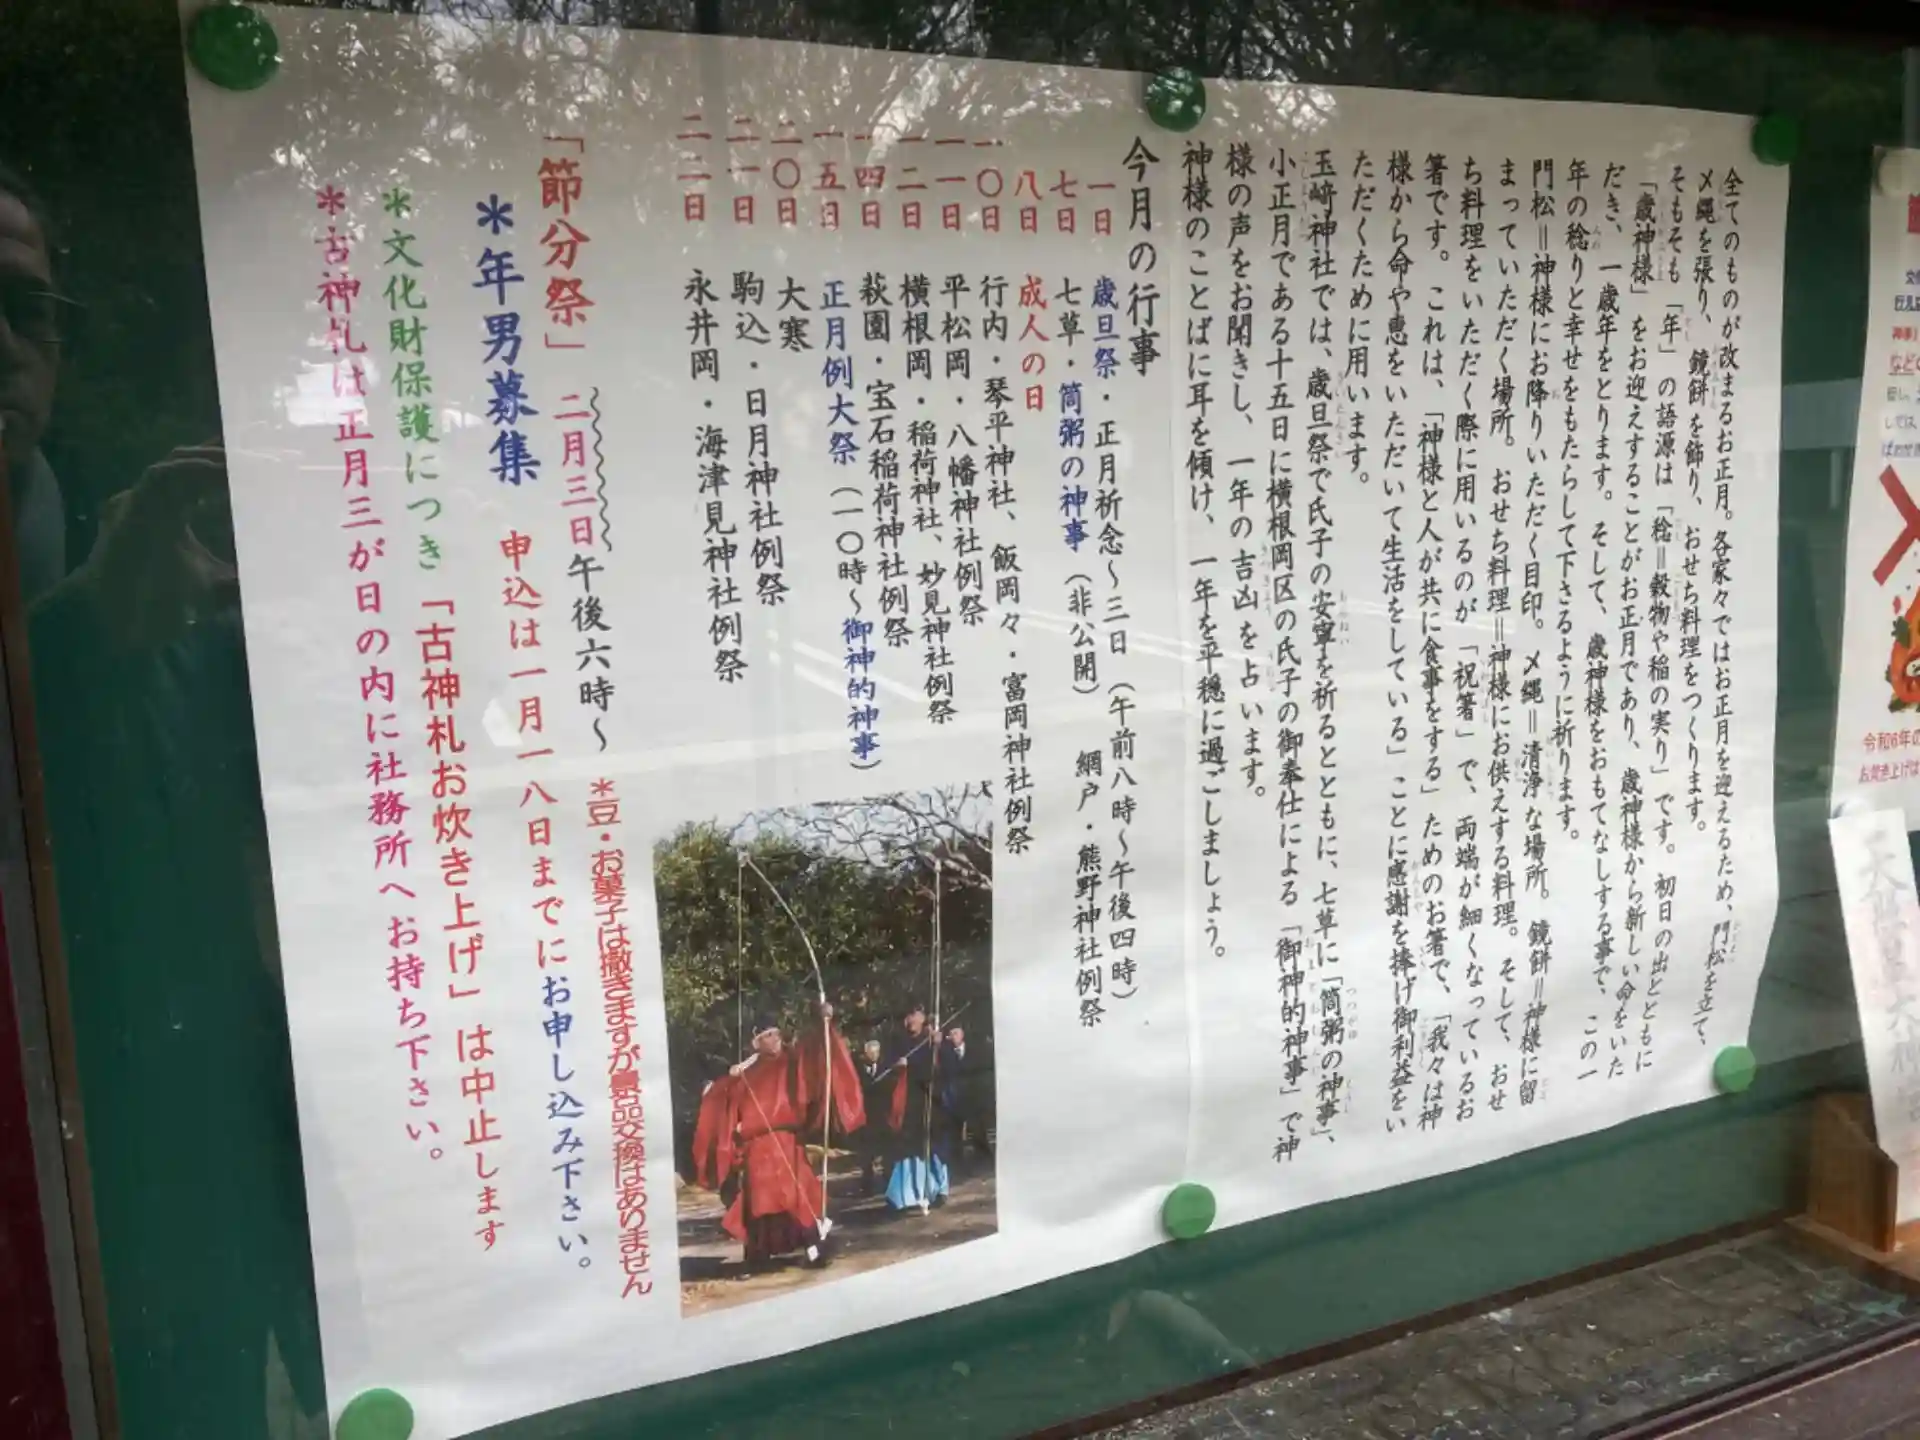 全てのものが改まるお正月。各家々ではお正月を迎えるため、門松を立て、
〆縄を張り、鏡餅を飾り、おせち料理をつくります。
そもそも「年」の語源は「稔＝穀物や稲の実り」です。初日の出とともに
「歳神様」をお迎えすることがお正月であり、歳神様から新しい命をいた
だき、一歳年をとります。そして、歳神様をおもてなしする事で、この一
年の稔りと幸せをもたらして下さるように祈ります。
門松＝神様にお降りいただく目印。〆縄＝清浄な場所。鏡餅＝神様に留
まっていただく場所。おせち料理＝神様にお供えする料理。そして、おせ
ち料理をいただく際に用いるのが「祝箸」で、両端が細くなっているお
箸です。これは、「神様と人が共に食事をする」ためのお箸で、「我々は神
様から命や恵をいただいて生活をしている」ことに感謝を捧げ御利益をい
ただくために用います。
玉﨑神社では、歳旦祭で氏子の安寧を祈るとともに、七草に「筒粥の神事」、
小正月である十五日に横根岡区の氏子の御奉仕による「御神的神事」で神
様の声をお聞きし、一年の吉凶を占います。
神様のことばに耳を傾け、一年を平穏に過ごしましょう。
今月の行事
一日 歳旦祭・正月祈念～三日（午前八時～午後四時）
七日 七草・筒粥の神事（非公開） 網戸・熊野神社例祭
八日 成人の日
一〇日 行内・琴平神社、飯岡々・富岡神社例祭
一一日 平松岡・八幡神社例祭
一二日 横根岡・稲荷神社、妙見神社例祭
一四日 萩園・宝石稲荷神社例祭
一五日 正月例大祭（一〇時～御神的神事）
二〇日 大寒
二一日 駒込・日月神社例祭
二二日 永井岡・海津見神社例祭
「節分祭」 二月三日午後六時～ ＊豆・お菓子は撒きますが景品交換はありません
＊年男募集 申込は一月一八日までにお申し込み下さい。
＊文化財保護につき「古神札お炊き上げ」は中止します
＊古神札は正月三が日の内に社務所へお持ち下さい。
令和6年の